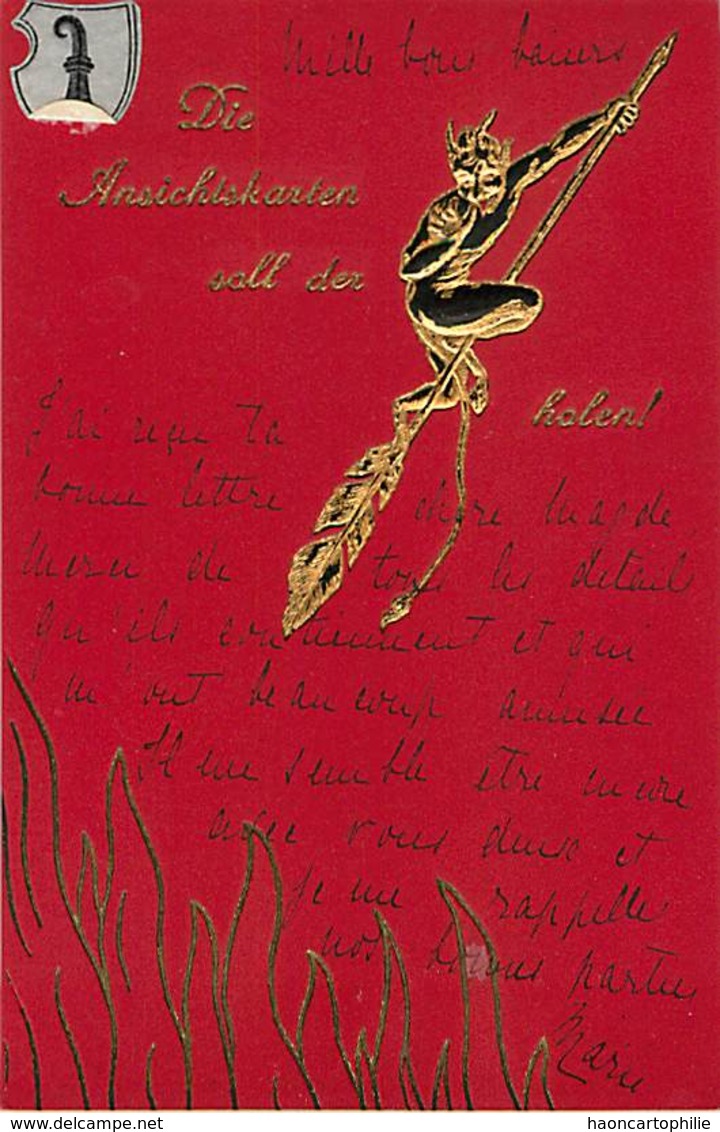 Mille bons baisers
Die
Ansichtskarten
soll der
holen!
J'ai reçu ta
bonne lettre chère Magde,
Merci de tous les details
qu'ils contiennent et qui
m'ont beaucoup amusée
Il me semble être encore
avec vous deux et
je me rappelle
nos bonnes parties
Marie
haoncartophilie